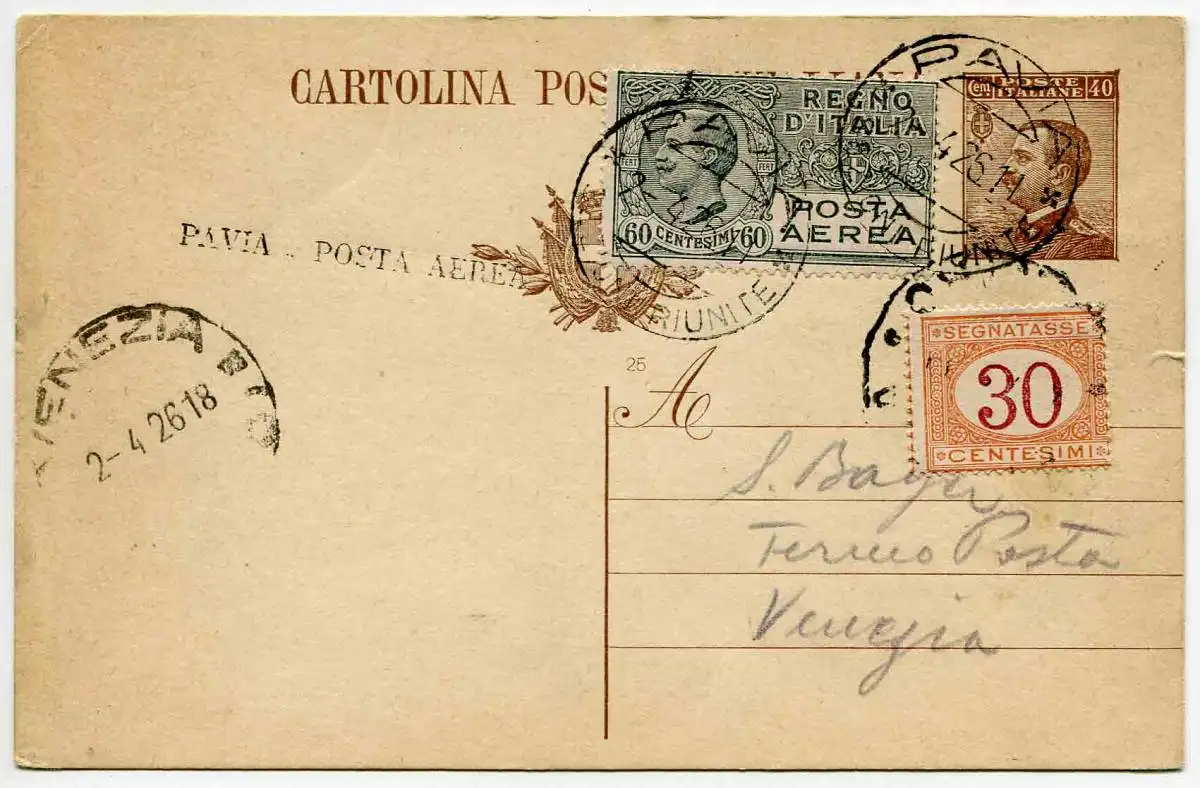 CARTOLINA POS
REGNO
D'ITALIA
POSTA
AEREA
60 CENTESIMI 60
FERT FERT
Cent POSTE 40
ITALIANE
PAVIA
4 26.11
RIUNITE
RIUNITE
PAVIA - POSTA AEREA
VENEZIA
2-4 26 18
25
A
SEGNATASSE
30
CENTESIMI
S. Bayer
Fermo Posta
Venezia